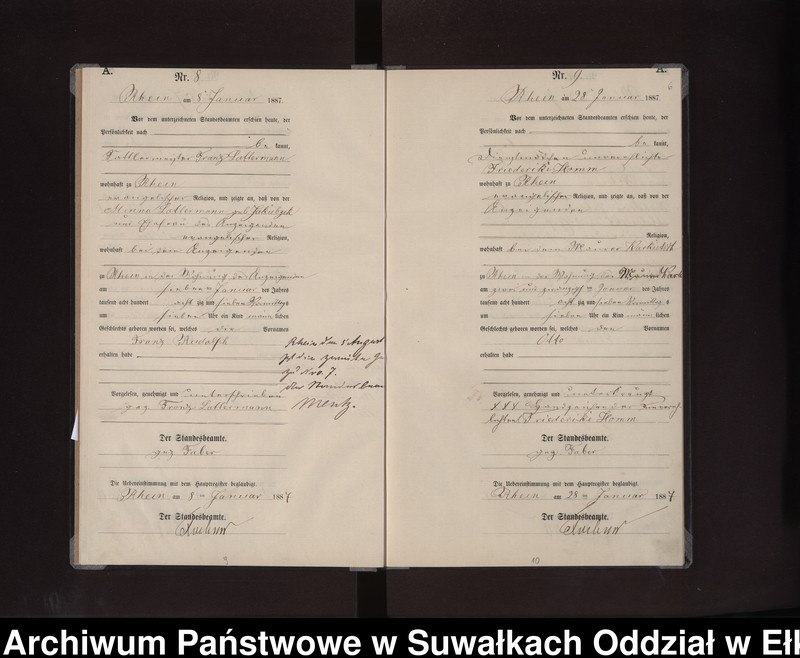 A.
Nr. 8
Rhein am 8 Januar 1887.
Vor dem unterzeichneten Standesbeamten erschien heute, der
Persönlichkeit nach
be kannt,
Sattlermeister Franz
wohnhaft zu Rhein
evangelischer Religion, und zeigte an, daß von der
Minna geb.
Ehefrau des Anzeigenden
evangelischer Religion,
wohnhaft bei dem Anzeigenden
zu Rhein in der Wohnung des Anzeigenden
am siebenten Januar des Jahres
tausend acht hundert acht zig und sieben Vormittags
um sieben Uhr ein Kind männ lichen
Geschlechts geboren worden sei, welches die Vornamen
Franz Rudolph
erhalten habe
Rhein den August
zu Nro. 7.
Der Standesbeam
Mentz.
Vorgelesen, genehmigt und unterschrieben
gez. Franz
Der Standesbeamte.
gez. Faber
Die Uebereinstimmung mit dem Hauptregister beglaubigt
Rhein am 8 ten Januar 1887
Der Standesbeamte.
9
A.
6
Nr. 9.
Rhein am 28 Januar 1887.
Vor dem unterzeichneten Standesbeamten erschien heute, der
Persönlichkeit nach
be kannt,
Dienstmädchen unverehelichte
Friederike Homm
wohnhaft zu Rhein
evangelischer Religion, und zeigte an, daß von der
Anzeigenden
Religion,
wohnhaft bei dem Maurer
zu Rhein in der Wohnung des Maurer
am zwei und zwanzigsten Januar des Jahres
tausend acht hundert acht zig und sieben Vormittags
um sieben Uhr ein Kind männ lichen
Geschlechts geboren worden sei, welches den Vornamen
Otto
erhalten habe
Vorgelesen, genehmigt und unterkreuzt
XXX Handzeichen der unverehe
lichten Friederike Homm
Der Standesbeamte.
gez. Faber
Die Uebereinstimmung mit dem Hauptregister beglaubigt
Rhein am 28 ten Januar 1887
Der Standesbeamte.
10
Archiwum Państwowe w Suwałkach Oddział w Ełk